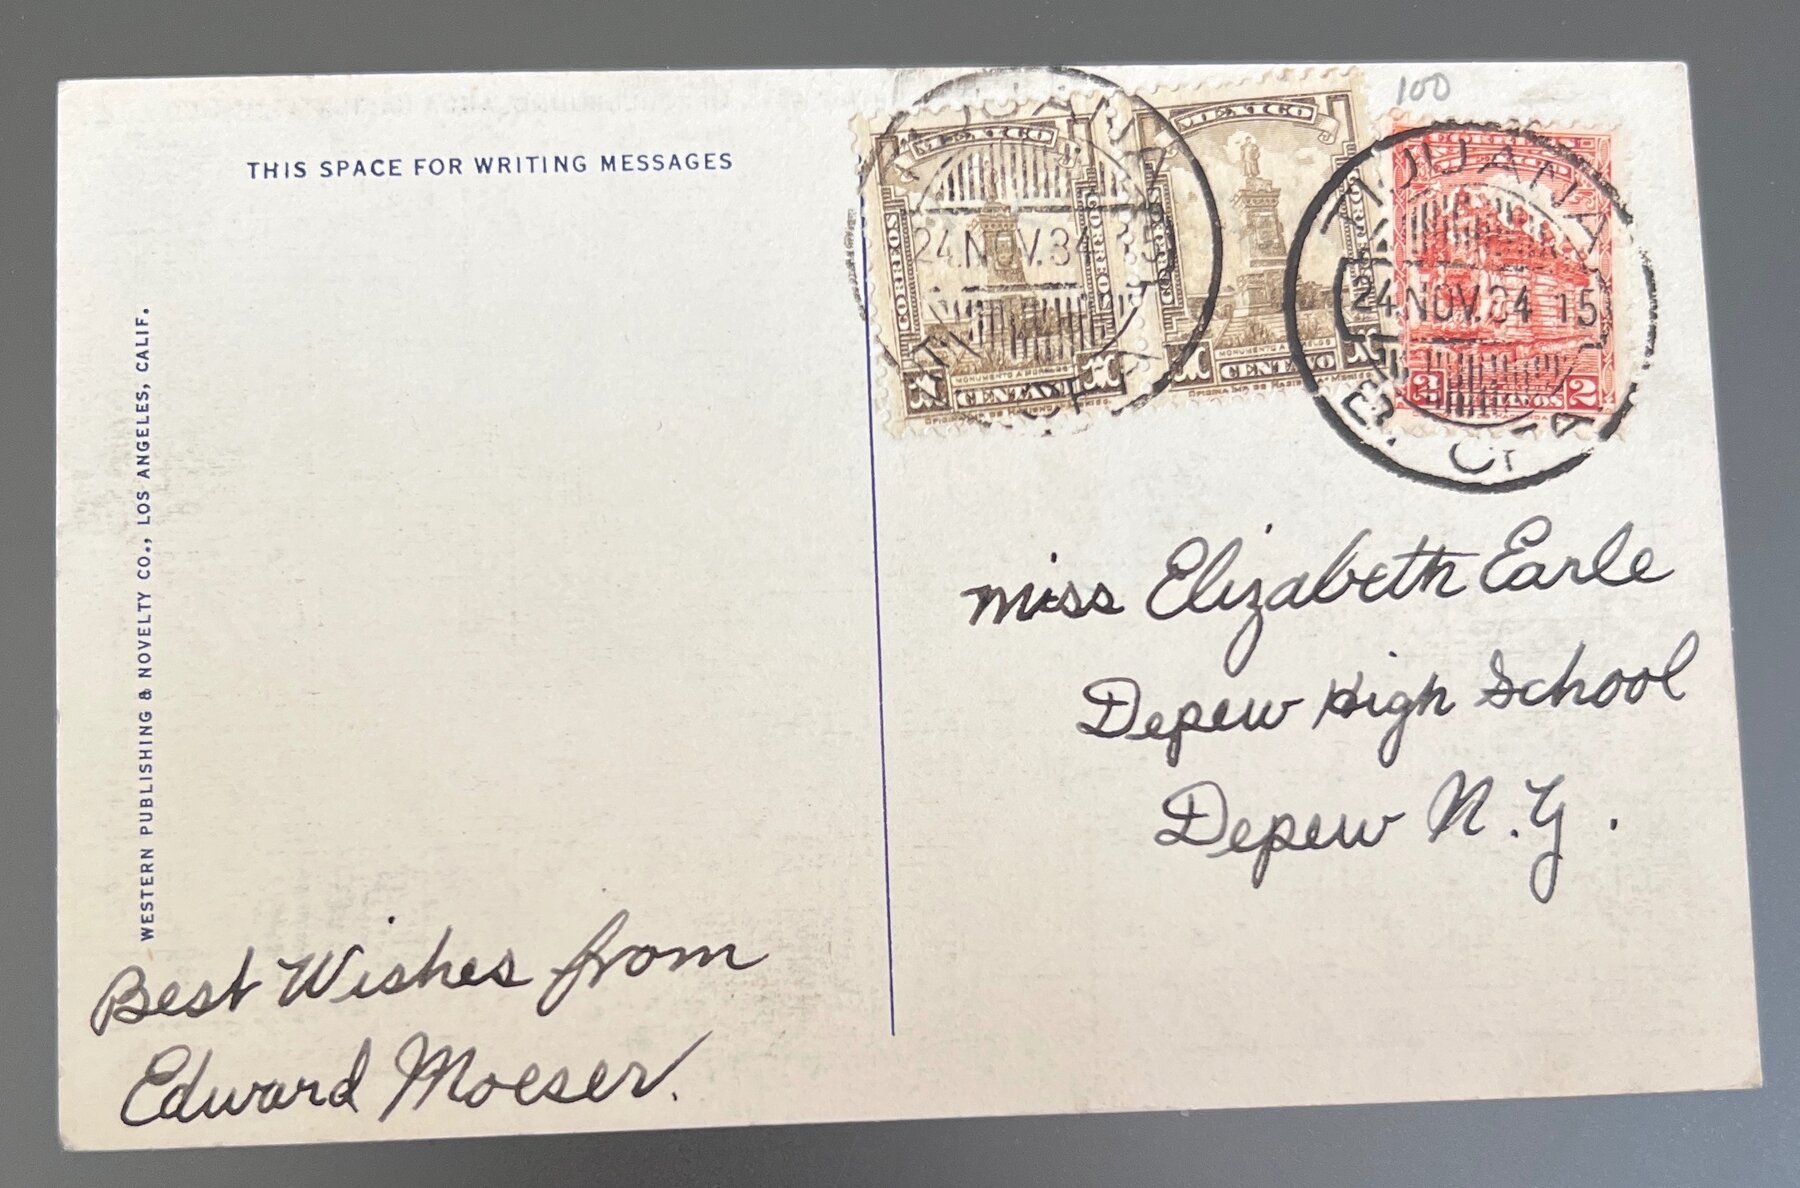 100
THIS SPACE FOR WRITING MESSAGES
MEXICO
MEXICO
CORREOS
CORREOS
CORREOS
CORREOS
MONUMENTO A MORELOS
MONUMENTO A MORELOS
1 CENTAVO 1
1 CENTAVO 1
2 CENTAVOS 2
TIJUANA
24.NOV.34 15
TIJUANA
24.NOV.34 15
B. CFA
WESTERN PUBLISHING & NOVELTY CO., LOS ANGELES, CALIF.
Miss Elizabeth Earle
Depew High School
Depew N.Y.
Best Wishes from
Edward Moeser.